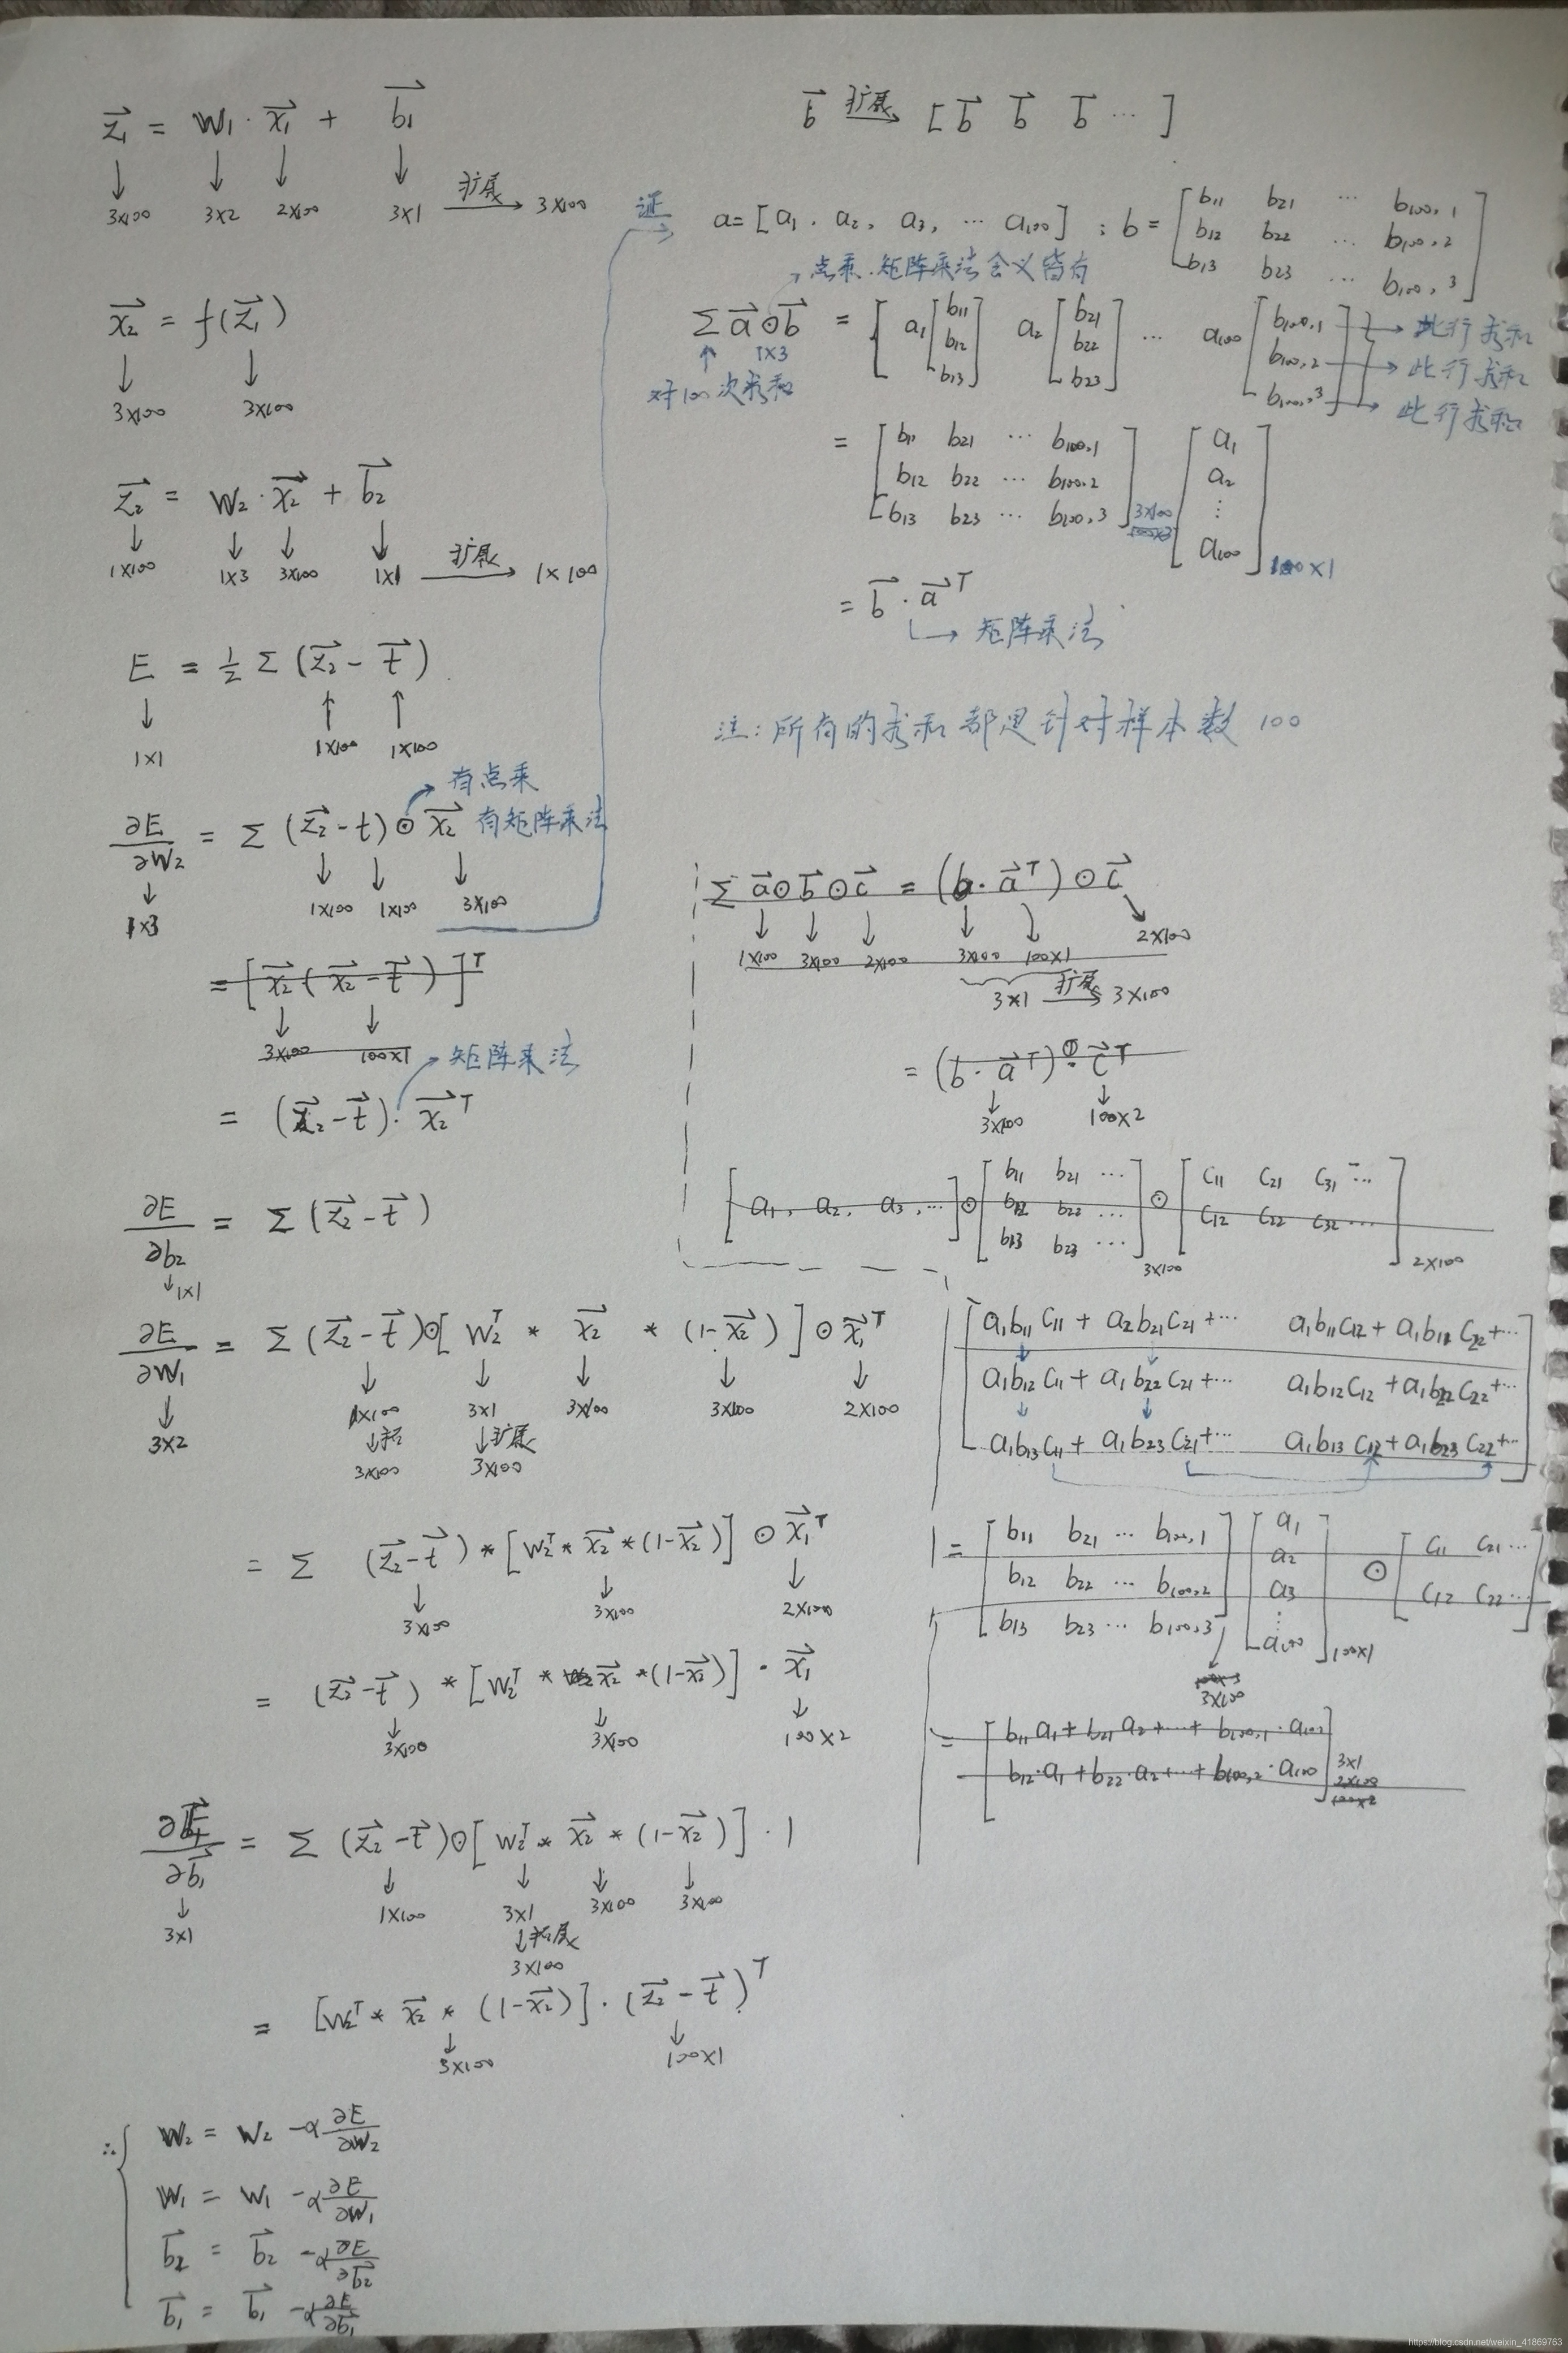 z₁ = W₁ · x₁ + b₁
3×100 3×2 2×100 3×1 扩展 3×100
x₂ = f(z₁)
3×100 3×100
z₂ = W₂ · x₂ + b₂
1×100 1×3 3×100 1×1 扩展 1×100
E = ½ Σ (z₂ - t)
1×1 1×100 1×100
有点乘
∂E/∂W₂ = Σ (z₂ - t) ⊙ x₂ 有矩阵乘法
1×3 1×100 1×100 3×100
= [x₂ (x₂ - t)]ᵀ
3×100 100×1
矩阵乘法
= (z₂ - t) · x₂ᵀ
∂E/∂b₂ = Σ (z₂ - t)
1×1
∂E/∂W₁ = Σ (z₂ - t) ⊙ [W₂ᵀ * x₂ * (1 - x₂)] ⊙ x₁ᵀ
3×2 1×100 3×1 3×100 3×100 2×100
扩展
3×100 3×100
= Σ (z₂ - t) * [W₂ᵀ * x₂ * (1 - x₂)] ⊙ x₁ᵀ
3×100 3×100 2×100
= (z₂ - t) * [W₂ᵀ * x₂ * (1 - x₂)] · x₁
3×100 3×100 100×2
∂E/∂b₁ = Σ (z₂ - t) ⊙ [W₂ᵀ * x₂ * (1 - x₂)] · 1
3×1 1×100 3×1 3×100 3×100
拓展
3×100
= [W₂ᵀ * x₂ * (1 - x₂)] · (z₂ - t)ᵀ
3×100 100×1
∴ W₂ = W₂ - α ∂E/∂W₂
W₁ = W₁ - α ∂E/∂W₁
b₂ = b₂ - α ∂E/∂b₂
b₁ = b₁ - α ∂E/∂b₁
b 扩展 [b b b ⋯]
证 a = [a₁, a₂, a₃, ⋯ a₁₀₀] ; b =
b₁₁ b₂₁ ⋯ b₁₀₀,₁
b₁₂ b₂₂ ⋯ b₁₀₀,₂
b₁₃ b₂₃ ⋯ b₁₀₀,₃
点乘.矩阵乘法含义皆有
Σ a ⊙ b =
1×3
对100次求和
a₁ b₁₁ a₂ b₂₁ ⋯ a₁₀₀ b₁₀₀,₁ → 此行求和
b₁₂ b₂₂ b₁₀₀,₂ → 此行求和
b₁₃ b₂₃ b₁₀₀,₃ → 此行求和
= b₁₁ b₂₁ ⋯ b₁₀₀,₁ a₁
b₁₂ b₂₂ ⋯ b₁₀₀,₂ a₂
b₁₃ b₂₃ ⋯ b₁₀₀,₃ 3×100 ⋮
a₁₀₀ 100×1
= b · aᵀ
矩阵乘法
注:所有的求和都是针对样本数100
Σ a ⊙ b ⊙ c = (b · aᵀ) ⊙ c
1×100 3×100 2×100 3×100 100×1 2×100
3×1 扩展 3×100
= (b · aᵀ) · cᵀ
3×100 100×2
[a₁, a₂, a₃, ⋯] ⊙
b₁₁ b₂₁ ⋯ ⊙ c₁₁ c₂₁ c₃₁ ⋯
b₁₂ b₂₂ ⋯ c₁₂ c₂₂ c₃₂ ⋯
b₁₃ b₂₃ ⋯
3×100 2×100
a₁b₁₁c₁₁ + a₂b₂₁c₂₁ + ⋯ a₁b₁₁c₁₂ + a₁b₁₁ c₂₂ + ⋯
a₁b₁₂c₁₁ + a₁b₂₂c₂₁ + ⋯ a₁b₁₂c₁₂ + a₁b₂₂c₂₂ + ⋯
a₁b₁₃c₁₁ + a₁b₂₃c₂₁ + ⋯ a₁b₁₃c₁₂ + a₁b₂₃c₂₂ + ⋯
= b₁₁ b₂₁ ⋯ b₁₀₀,₁ a₁ ⊙ c₁₁ c₂₁ ⋯
b₁₂ b₂₂ ⋯ b₁₀₀,₂ a₂ c₁₂ c₂₂ ⋯
b₁₃ b₂₃ ⋯ b₁₀₀,₃ a₃
⋮
a₁₀₀ 100×1
3×100
= b₁₁a₁ + b₂₁a₂ + ⋯ + b₁₀₀,₁ · a₁₀₀
b₁₂·a₁ + b₂₂·a₂ + ⋯ + b₁₀₀,₂ · a₁₀₀ 3×1
2×100
100×2
https://blog.csdn.net/weixin_41869763